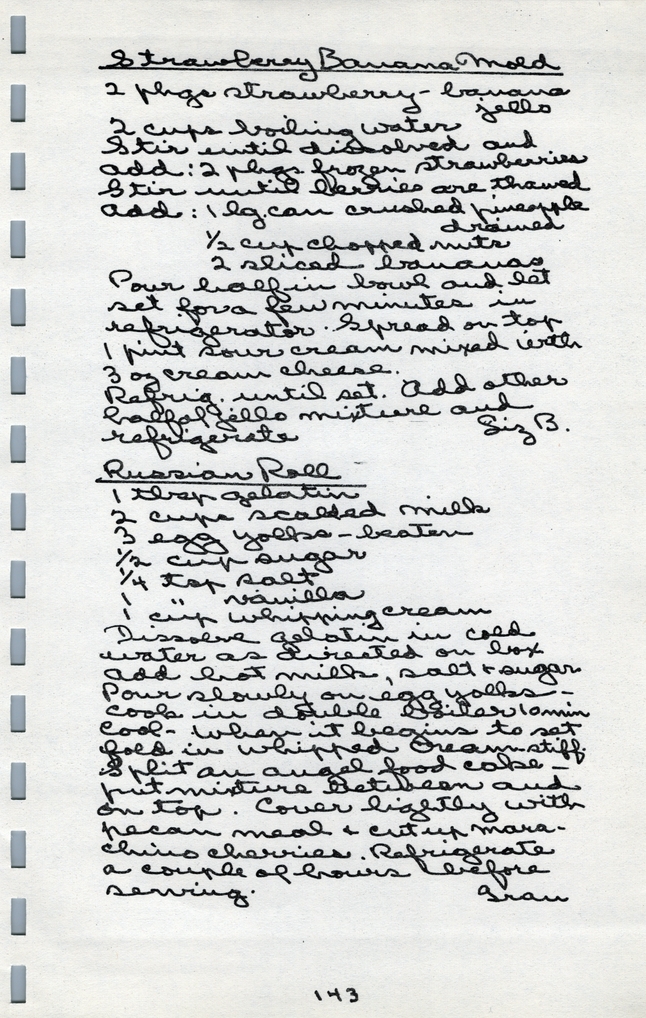 Strawberry Banana Mold
2 phgs strawberry-banana
jello
2 cups boiling water
Stir until dissolved and
add: 2 phgs frozen strawberries
Stir until berries are thawed
add: 1 lg. can crushed pineapple
drained
1/2 cup chopped nuts
2 sliced bananas
Pour half in bowl and let
set for a few minutes in
refrigerator. Spread on top
1 pint sour cream mixed with
3 oz cream cheese.
Refrig. until set. Add other
half of jello mixture and
refrigerate Liz B.
Russian Roll
1 tbsp gelatin
2 cups scalded milk
3 egg yolks - beaten
1/2 cup sugar
1/4 tsp salt
1 " vanilla
1 cup whipping cream
Dissolve gelatin in cold
water as directed on box
add hot milk, salt + sugar
Pour slowly on egg yolks -
cook in double boiler 10 min
cool - when it begins to set
fold in whipped cream-stiff.
Split an angel food cake -
put mixture between and
on top. Cover lightly with
pecan meal + cut up mara-
chino cherries. Refrigerate
a couple of hours before
serving. Gran
143